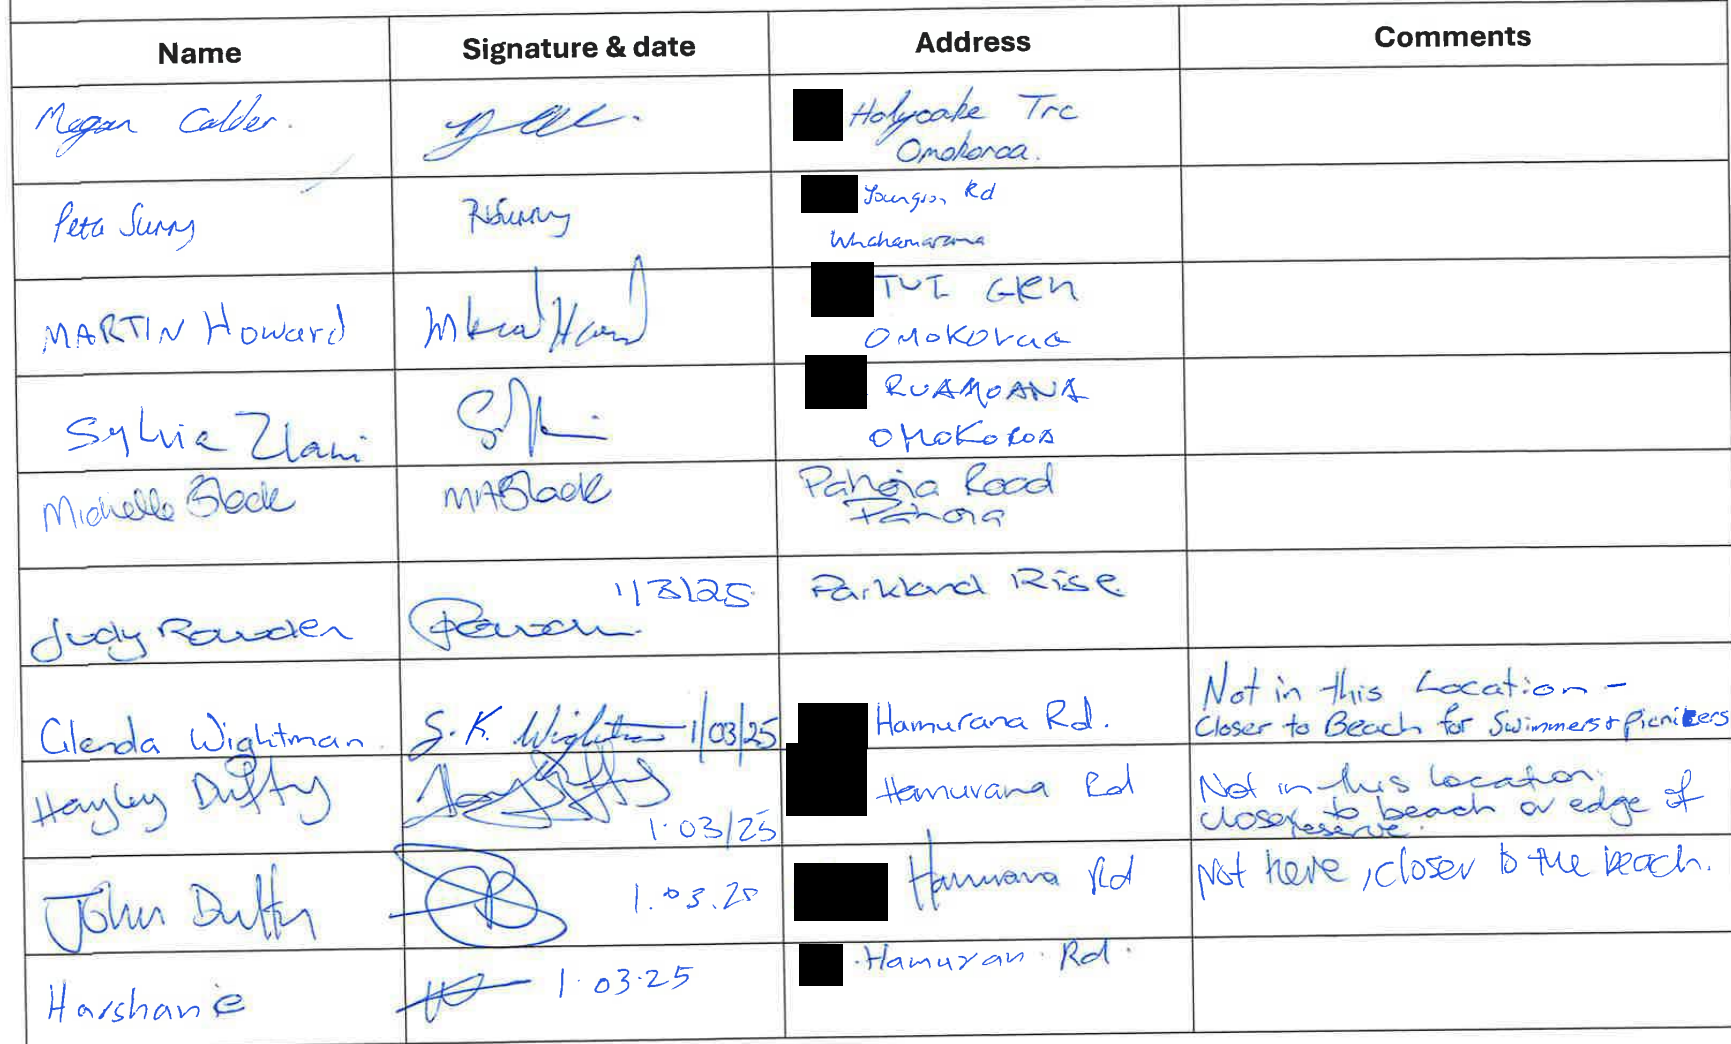 Name Signature & date Address Comments
Megan Calder. Holycake Trc
Omokoroa.
Peta Sunny PSunny Youngson Rd
Whakamarama
MARTIN Howard TUI Glen
OMOKOroa
Sylvie RUAMOANA
OMOKOROA
Michelle Black MABlack Pahoia Road
Pahoia
Judy Rowden 1/3/25 Parkland Rise
Glenda Wightman G. K. Wightman 1/03/25 Hamurana Rd. Not in this Location -
Closer to Beach for Swimmers + Picnikers
Hayley Duffy 1.03/25 Hamurana Rd Not in this location.
closer to beach or edge of
reserve.
John Duffy 1.03.25 Hamurana Rd Not here, closer to the beach.
Harshanie 1.03.25 Hamuran Rd.